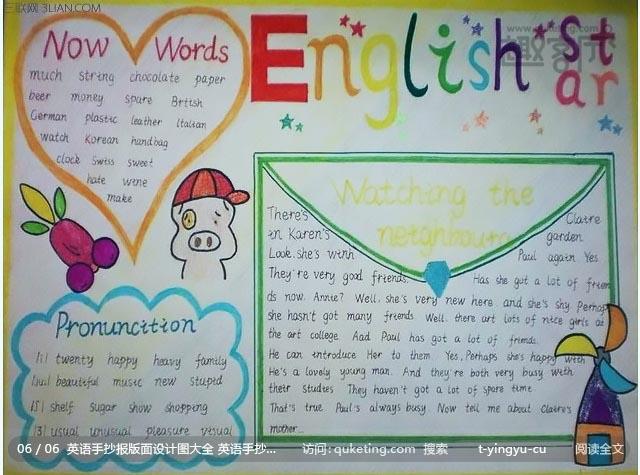 三联网 3LIAN.COM
English
St
ar
Now Words
much string chocolate paper
beer money spare British
German plastic leather Italian
watch Korean handbag
clock Swiss sweet
hate wine
make
Watching the
neighbours
There's Claire
in Karen's garden
Look. she's with Paul again Yes
They're very good friends. Has she got a lot of frien
ds now. Annie? Well. she's very new here and she's shy. Perhaps
she hasn't got many friends. Well. there art lots of nice girls at
the art college. And Paul has got a lot of friends.
He can introduce Her to them. Yes, Perhaps she's happy with
He's a lovely young man. And they're both very busy with
their studies They haven't got a lot of spare time
That's true. Paul's always busy. Now tell me about Claire's
mother...
Pronuncition
twenty happy heavy family
beautiful music new stupid
[ʃ] shelf sugar show shopping
[ʒ] usual unusual pleasure visual
06 / 06 英语手抄报版面设计图大全 英语手抄... 访问: quketing.com 搜索 t-yingyu-cu 阅读全文